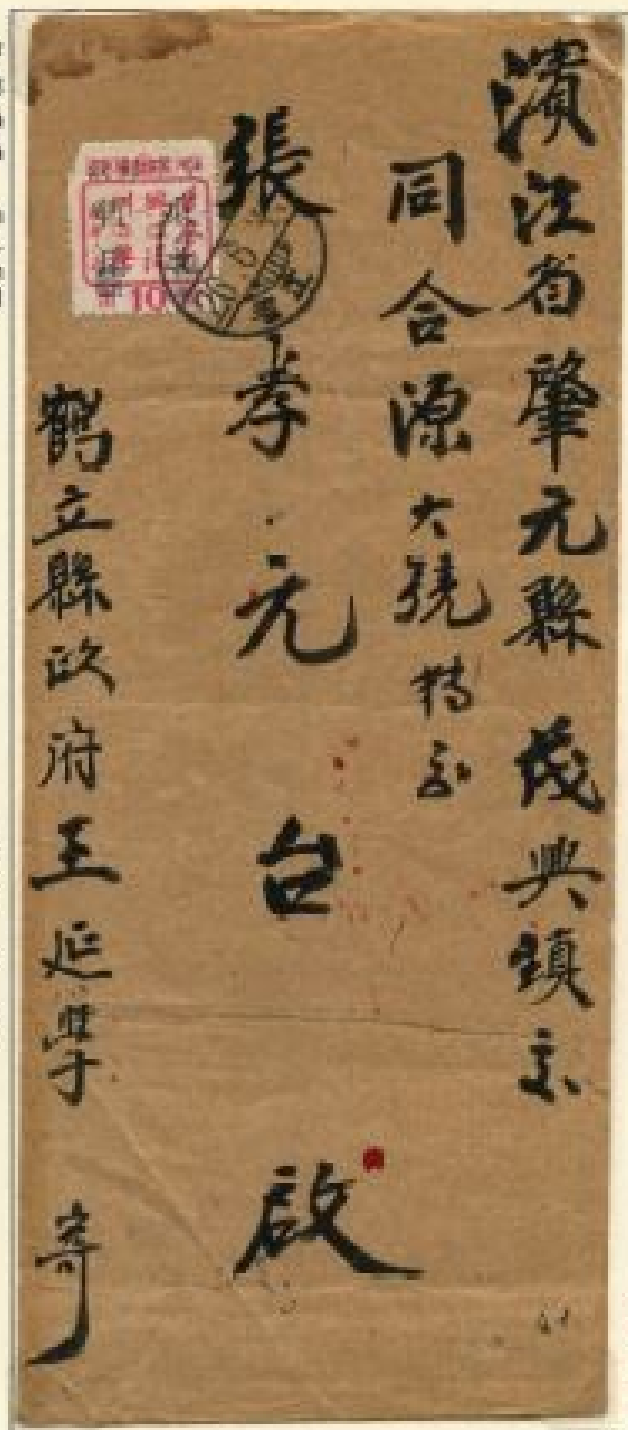 濱江省肇元縣 茂興鎮交
同合源大號轉交
張孝元台啟
鶴立縣政府王延學 寄
10